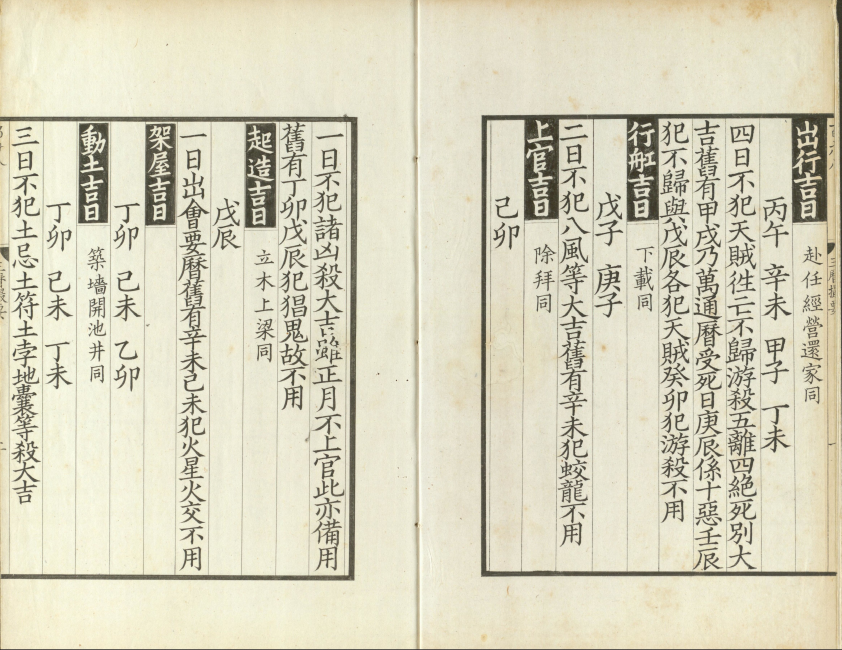 出行吉日 赴任經營還家同
丙午 辛未 甲子 丁未
四日不犯天賊徃亡不歸游殺五離四絶死别大
吉舊有甲戌乃萬通曆受死日庚辰係十惡壬辰
犯不歸與戊辰各犯天賊癸卯犯游殺不用
行舡吉日 下載同
戊子 庚子
二日不犯八風等大吉舊有辛未犯蛟龍不用
上官吉日 除拜同
己卯
一日不犯諸凶殺大吉雖正月不上官此亦備用
舊有丁卯戊辰犯猖鬼故不用
起造吉日 立木上梁同
戊辰
一日出會要曆舊有辛未己未犯火星火交不用
架屋吉日
丁卯 己未 乙卯
動土吉日 築墻開池井同
丁卯 己未 丁未
三日不犯土忌土符土孛地囊等殺大吉